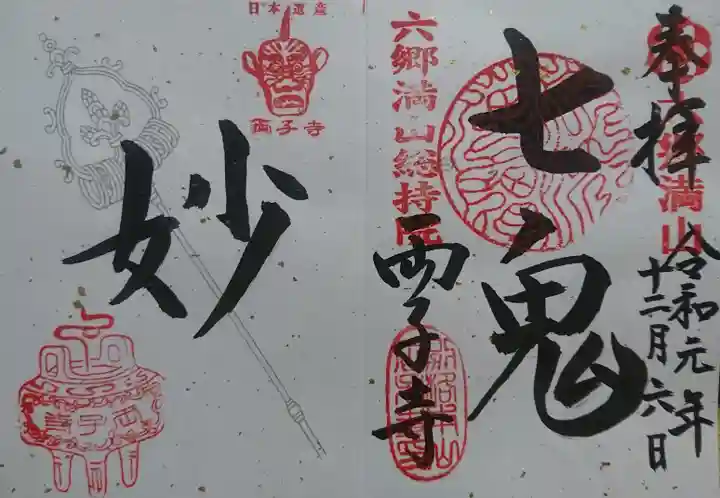 奉拝
六郷満山
令和元年
十二月六日
七鬼
六郷満山総持院
両子寺
妙
日本遺産
両子寺
両子寺